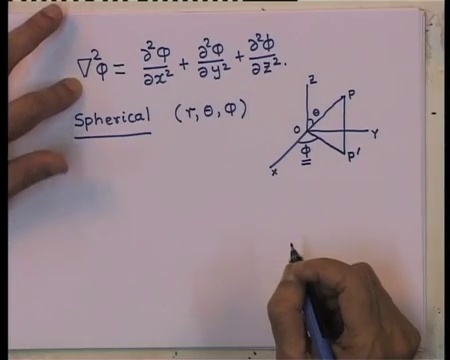 ∇²φ = ∂²φ/∂x² + ∂²φ/∂y² + ∂²φ/∂z².
Spherical (r, θ, φ)
Z
θ
P
O
Y
φ
P'
X